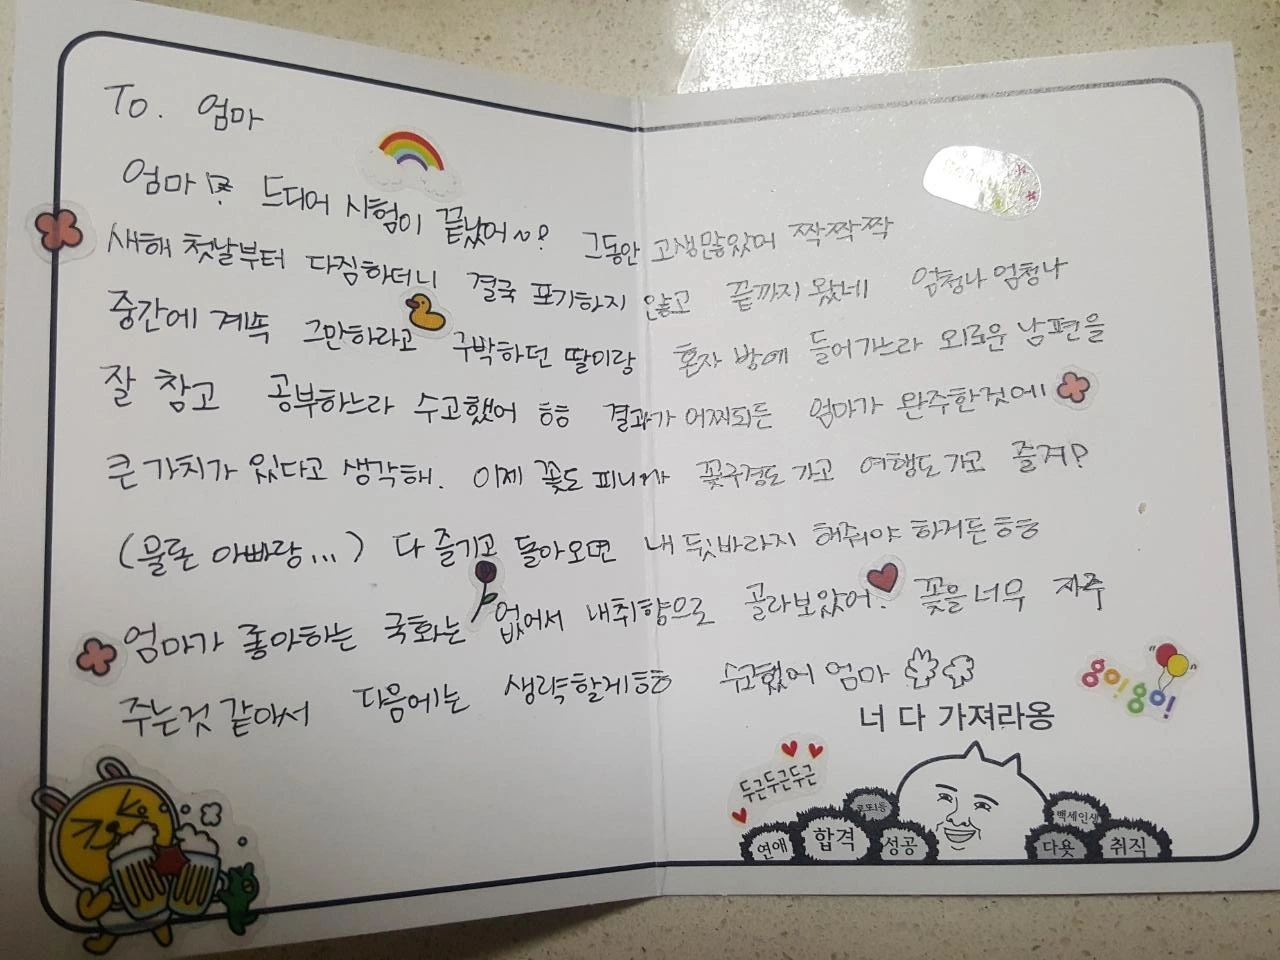 To. 엄마
엄마 드디어 시험이 끝났어~? 그동안 고생많았어 짝짝짝
새해 첫날부터 다짐하더니 결국 포기하지 않고 끝까지 왔네 엄청나 엄청나
중간에 계속 그만하라고 구박하던 딸이랑 혼자 방에 들어가느라 외로운 남편을
잘 참고 공부하느라 수고했어 ㅎㅎ 결과가 어찌되든 엄마가 완주한것에
큰 가치가 있다고 생각해. 이제 꽃도 피니까 꽃구경도 가고 여행도 가고 즐겨?
(물론 아빠랑...) 다 즐기고 돌아오면 내 뒷바라지 해줘야 하거든ㅎㅎ
엄마가 좋아하는 국화는 없어서 내취향으로 골라보았어. 꽃을 너무 자주
주는것 같아서 다음에는 생략할게ㅎㅎ 수고했어 엄마
너 다 가져라옹
go!go!
두근두근두근
연애 합격 성공 로또1등 백세인생 다욧 취직